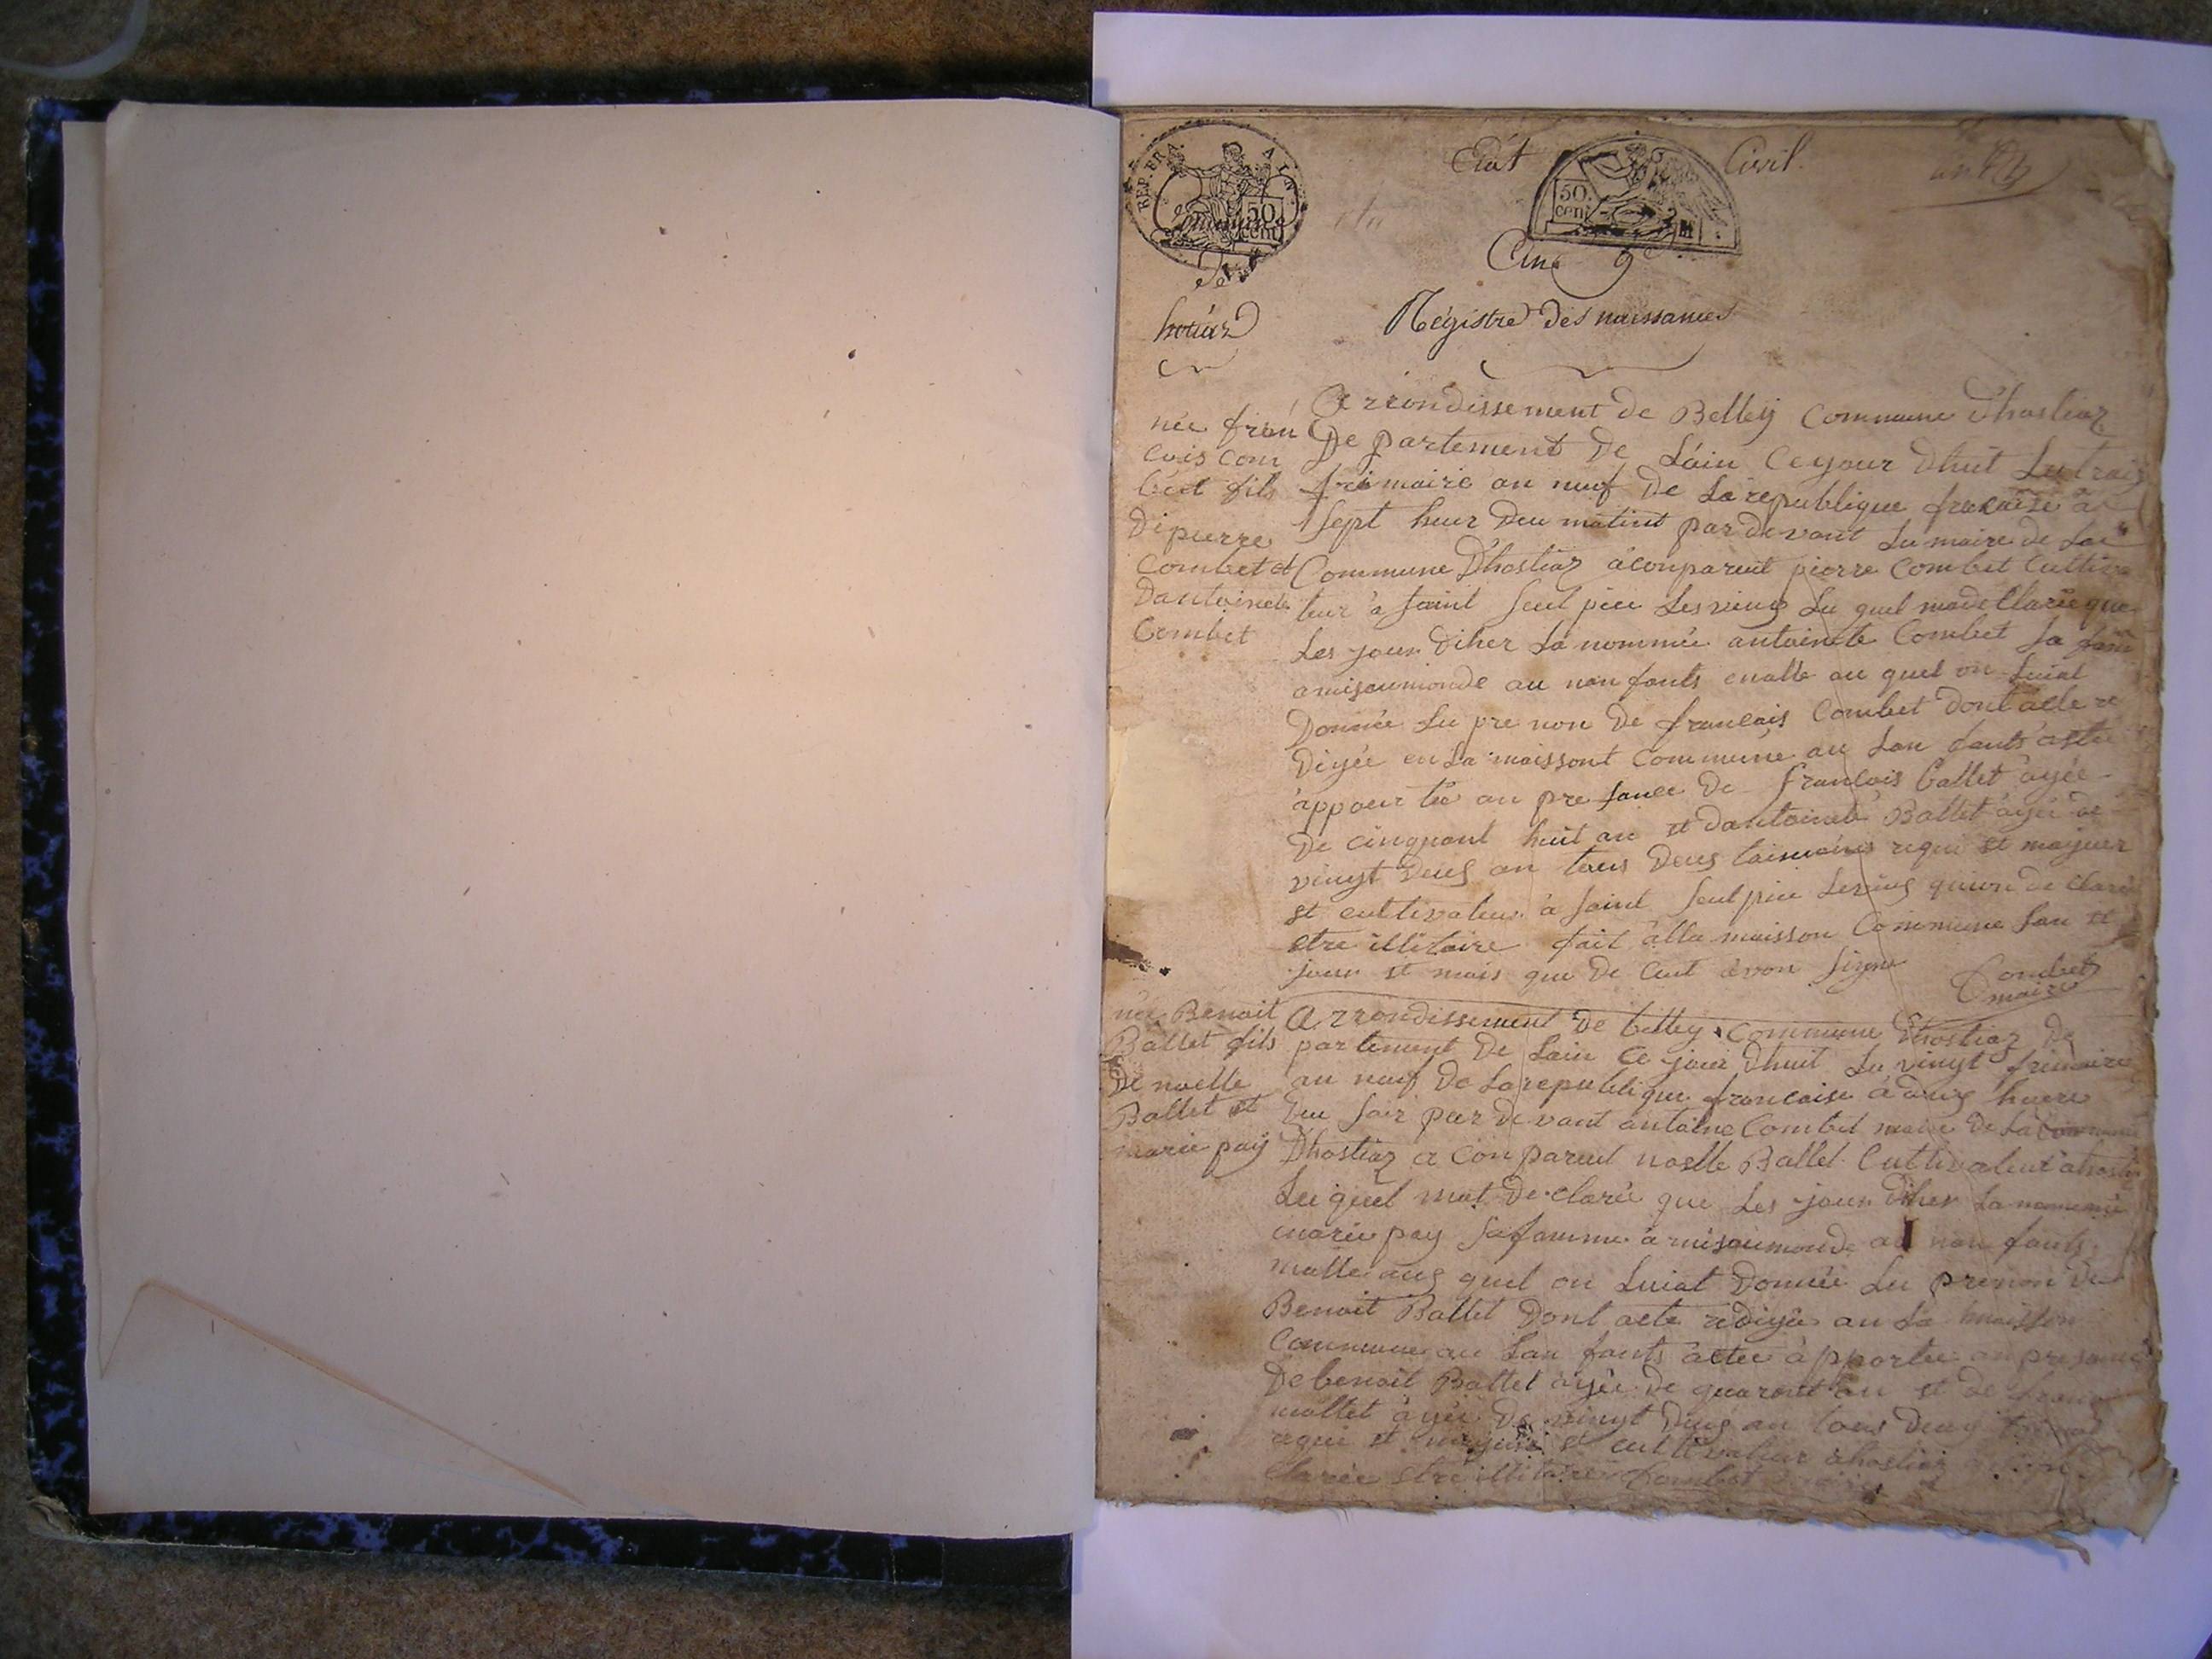 REP. FRA. AIN.
50 cent
Etat Civil.
50. cent
an 9
De
Cinq
hotiaz
Régistre des naissances
née fran
cois com
bet fils
De pierre
Combet et
Dantoinete
Combet
Arrondissement de Belley Commune Dhostiaz
De partement De Lain Ce jour Dhuit Les traiz
frimaire an neuf De La republique francaise a
Sept heur Deu matint par devant Lu maire de La
Commune Dhostiaz aconparent pierre Combet Cultiva
teur a saint seul pice Lesvieux Lu quel ma de Clarée que
Les jour Diher La nommée antoinete Combet Sa fam
a mis au monde au nan fants malle au quel on Luiat
Donnée Lu pre non De francais Combet Dont acte re
Digée en La maissont Commune au Lan fants astée
appour tée an pre sance De francois Ballet agée
De cinquant huit an et Dantoinete Ballet agée de
vingt Deus an tous Deus taimoins requi et majeur
et cultivateur a saint seul pice Levieux quion de Clarée
etre illitaire fait alla maisson Commune Lan et
jour et mois que De Cut avon signe
Combet
maire
née Benoit
Ballet fils
De noelle
Ballet et
marie pay
Arrondissement De belley Commune Dhostiaz De
partement De Lain Ce jour Dhuit Lu vingt frimaire
an neuf De La republique francaise a heure
Deu soir par De vant antoine Combet maire De La Commune
Dhostiaz a Conparent noelle Ballet Cultivateur ahostiaz
Lu quel mat De clarée que Les jour Diher La nommée
marie pay Sa famme a mis au monde au nan fants
malle aus quel on Luiat Donnée Lu prenon De
Benoit Ballet Dont acte redigée an La maisson
Commune au Lan fants aetee apportée an presance
De benoit Ballet agée De quarant an et de
mallet agée De vingt Deus an tous Deus
requi et majeur et cultivateur ahostiaz
Clarée etre illitaire Combet